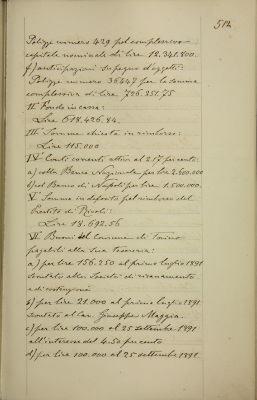 512
Polizze numero 429 pel complessivo
capitale nominale di lire 12.341.800.
f) anticipazioni su pegno d'oggetti:
Polizze numero 36447 per la somma
complessiva di lire 726.251,75
II Fondo in cassa:
Lire 618.426.84.
III Somme chieste in rimborso:
Lire 115.000
IV Conti correnti attivi al 2 1/2 per cento:
a) colla Banca Nazionale per lire 2.600.000
b) col Banco di Napoli per lire 1.500.000.
V Somme in deposito pel rimborso del
Prestito di Rivoli:
Lire 18.692.56
VI Buoni del Comune di Torino
pagabili alla sua Tesoreria:
a) per lire 156.250 al primo luglio 1891
scontato alla Società di risanamento
e di costruzioni
b) per lire 21.000 al primo luglio 1891
scontato al Cav. Giuseppe Maggia.
c) per lire 100.000 al 25 settembre 1891
all'interesse del 4.50 per cento
d) per lire 100.000 al 25 settembre 1891.